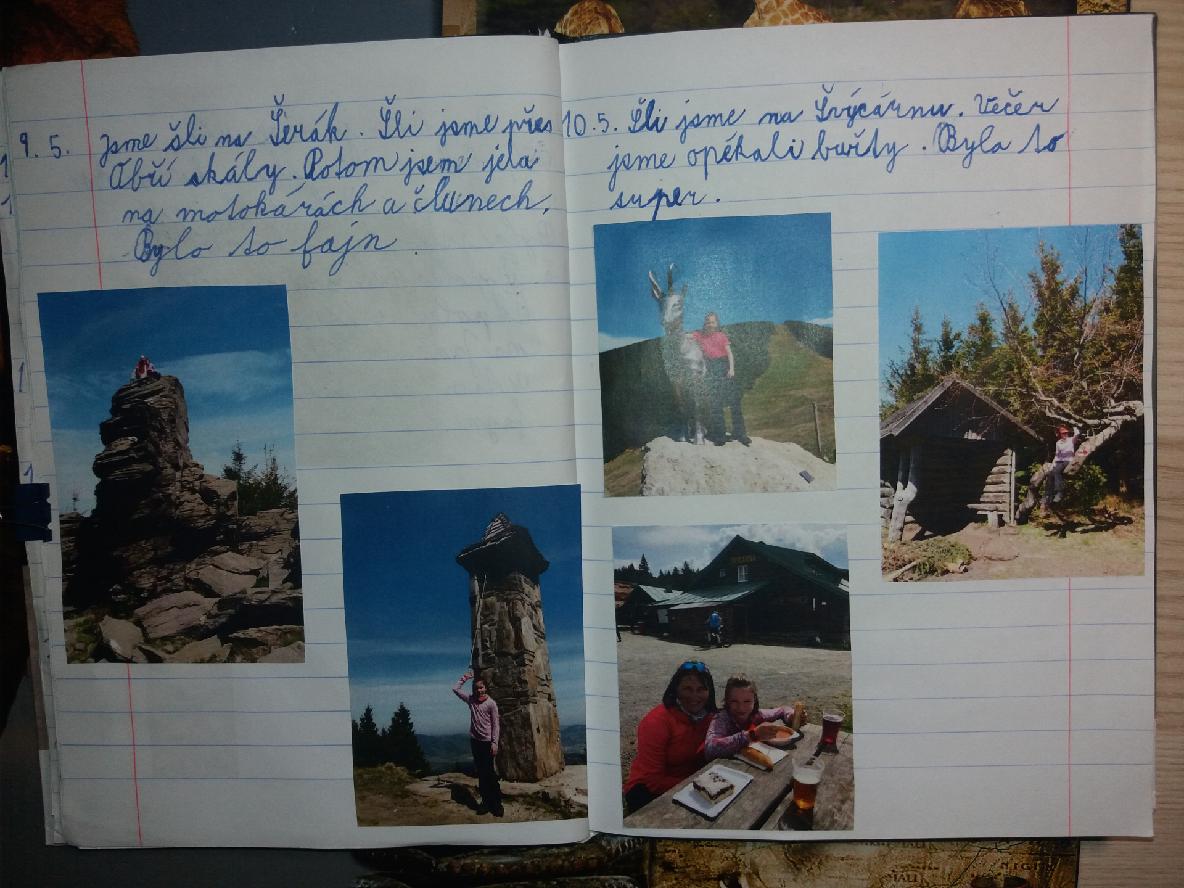 9. 5. Jsme šli na Šerák. Šli jsme přes
Obří skály. Potom jsem jela
na motokárách a člunech.
Bylo to fajn.
10. 5. Šli jsme na Švýcárnu. Večer
jsme opékali buřty. Bylo to
super.